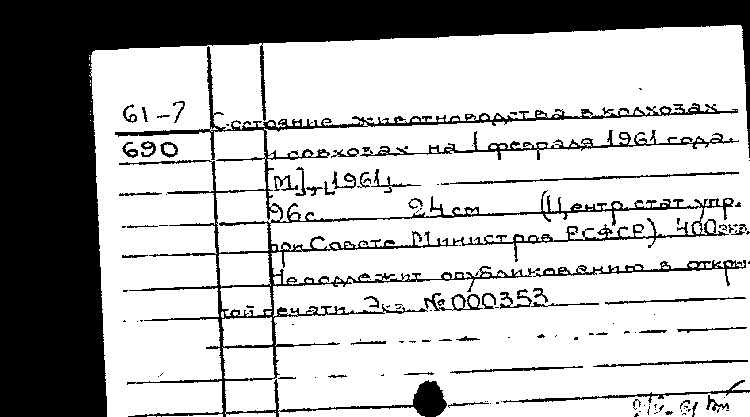 61-7 Состояние животноводства в колхозах
690 и совхозах на 1 февраля 1961 года.
[М.], [1961].
96 с. 24 см (Центр. стат. упр.
при Совете Министров РСФСР). 400 экз.
Не подлежит опубликованию в откры-
той печати. Экз. № 000353